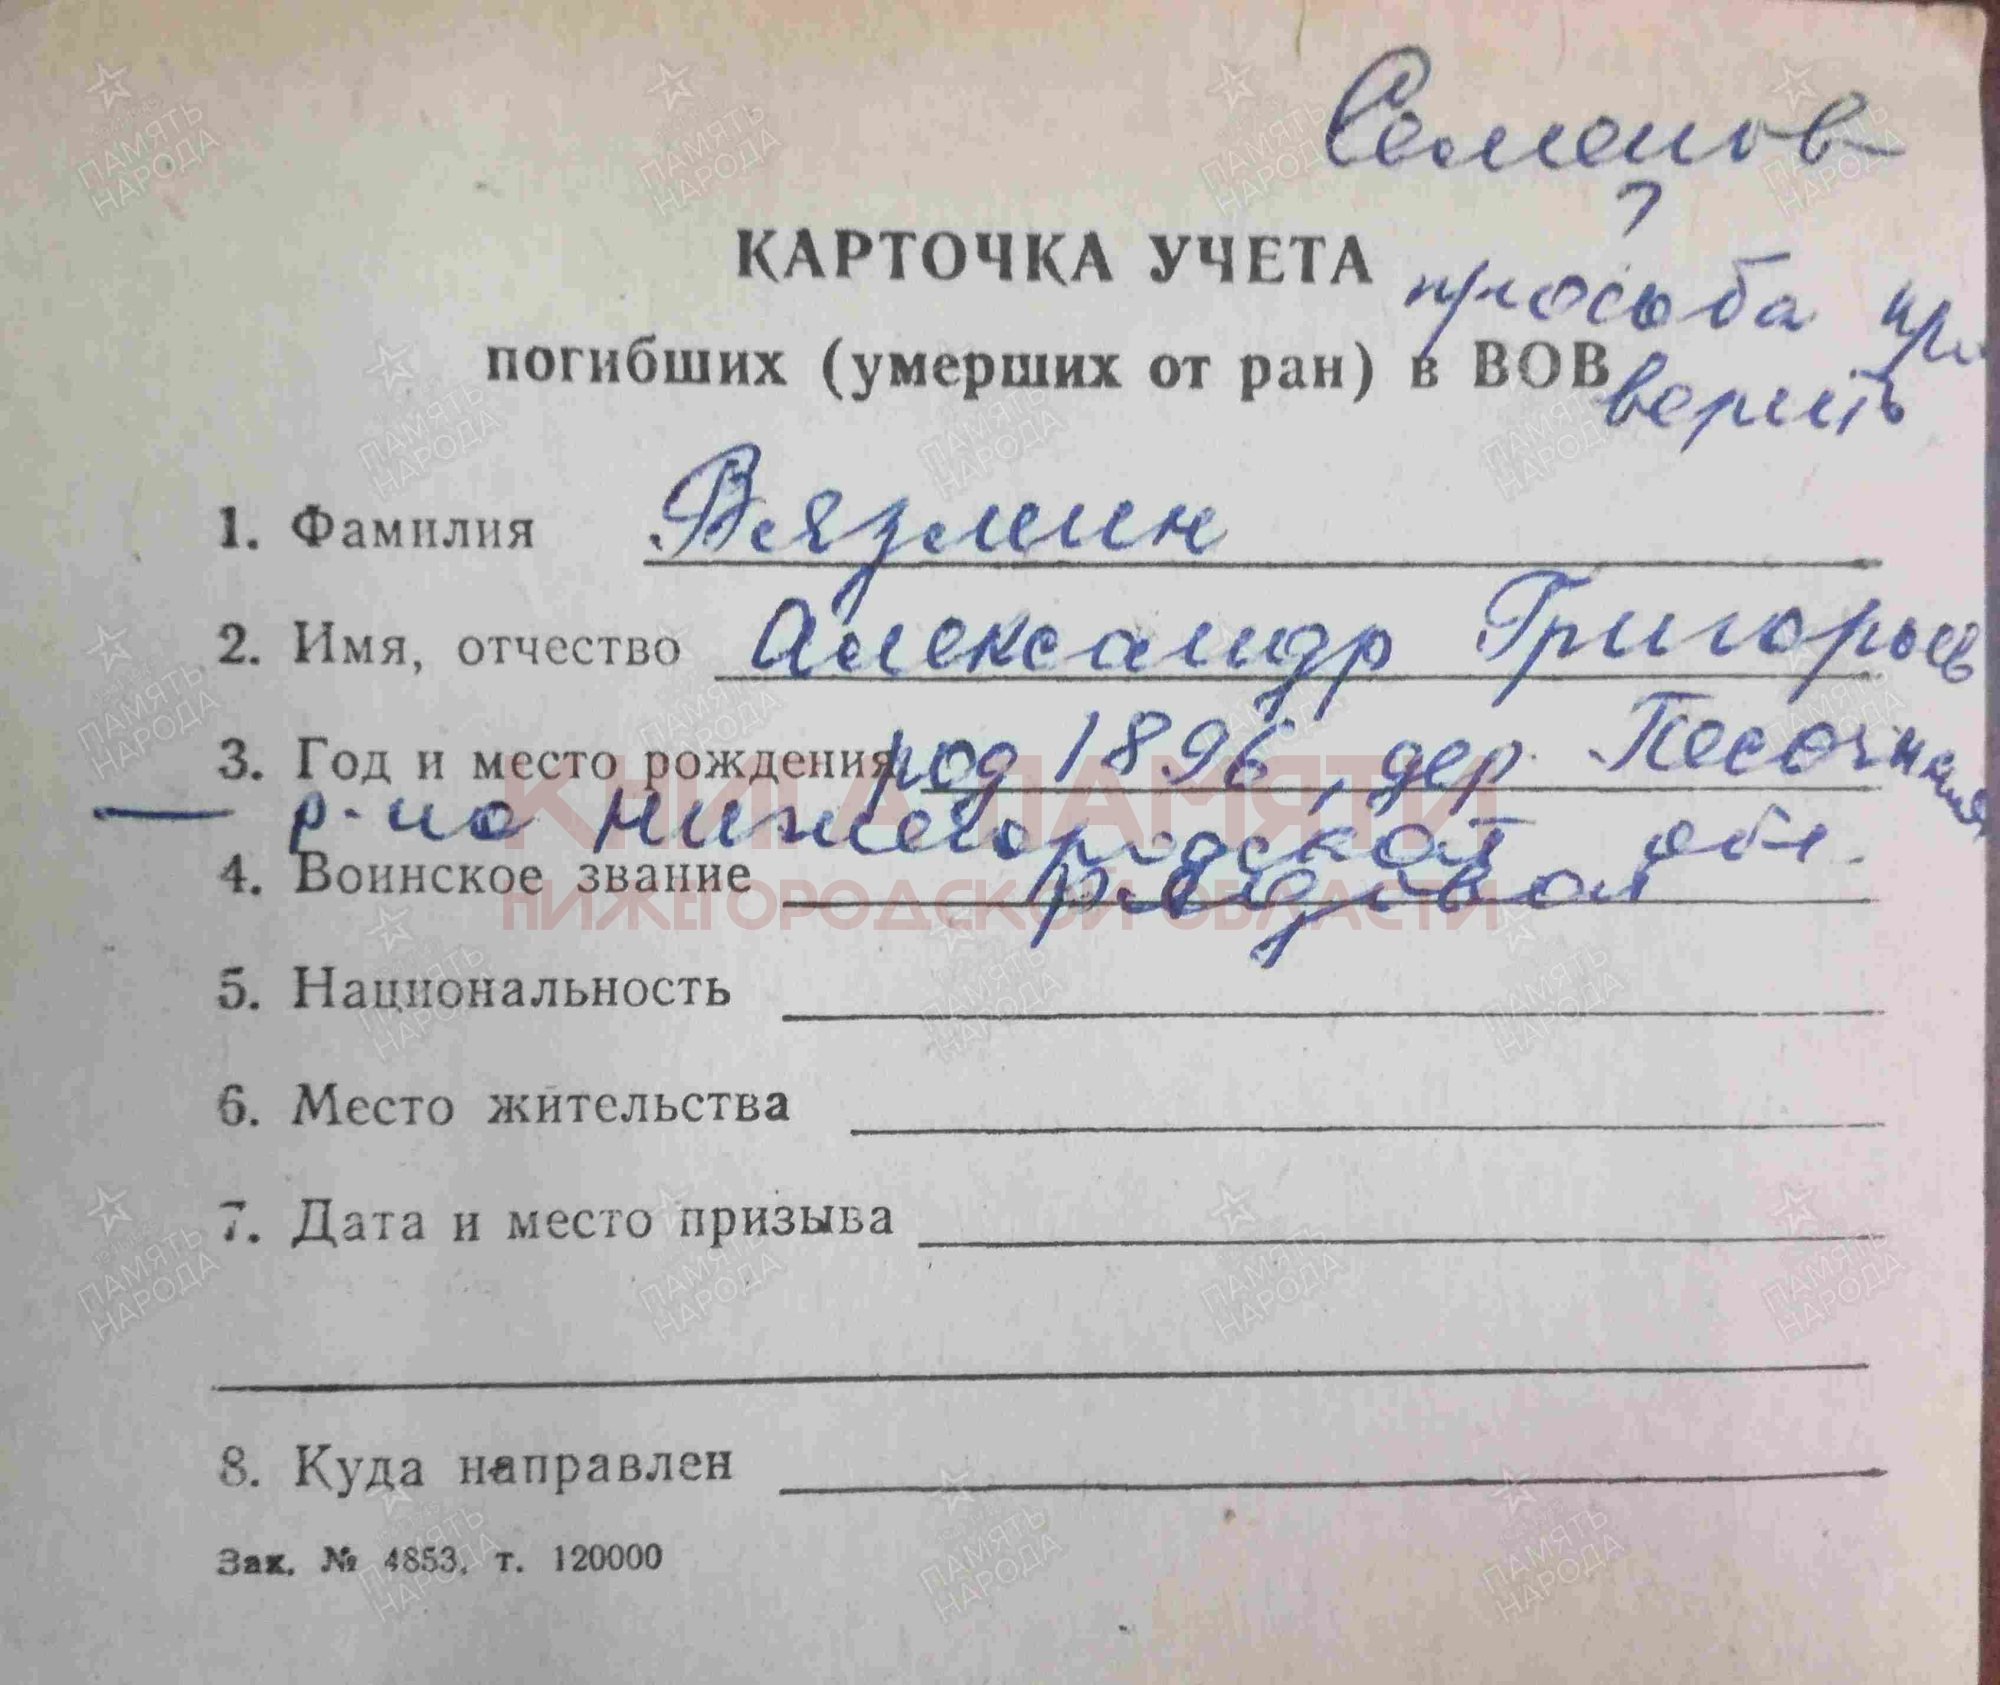 Семенов
?
КАРТОЧКА УЧЕТА просьба про
погибших (умерших от ран) в ВОВ верить
1. Фамилия Вязмин
2. Имя, отчество Александр Григорьев
3. Год и место рождения род 1896, дер. Песочная
— р-но Нижегородской обл.
4. Воинское звание рядовой
5. Национальность
6. Место жительства
7. Дата и место призыва
8. Куда направлен
Зак. № 4853, т. 120000
КНИГА ПАМЯТИ
НИЖЕГОРОДСКОЙ ОБЛАСТИ
ПАМЯТЬ
НАРОДА